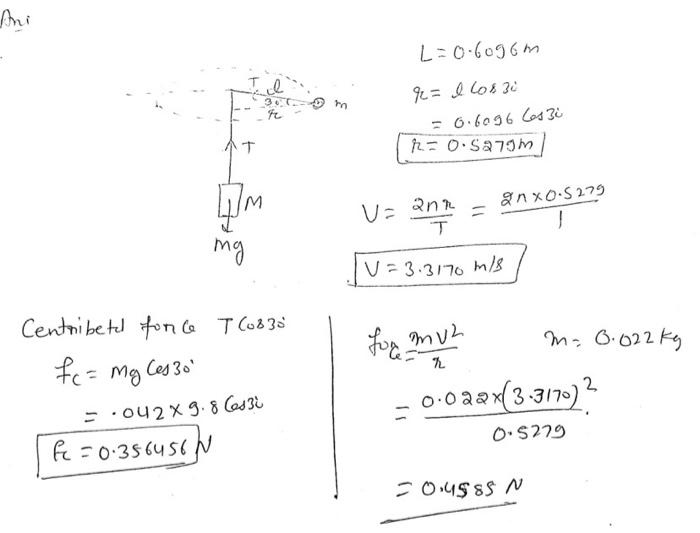 Ans
T l
30°
r
m
T
M
mg
L = 0.6096m
r = l Cos 30
= 0.6096 Cos 30
r = 0.5279m
V = 2πr / T = 2π x 0.5279 / 1
V = 3.3170 m/s
Centribetel force T Cos30°
fc = Mg Cos30°
= .042 x 9.8 Cos30
fc = 0.356456 N
force = mv² / r m = 0.022 kg
= 0.022 x (3.3170)² / 0.5279
= 0.4585 N